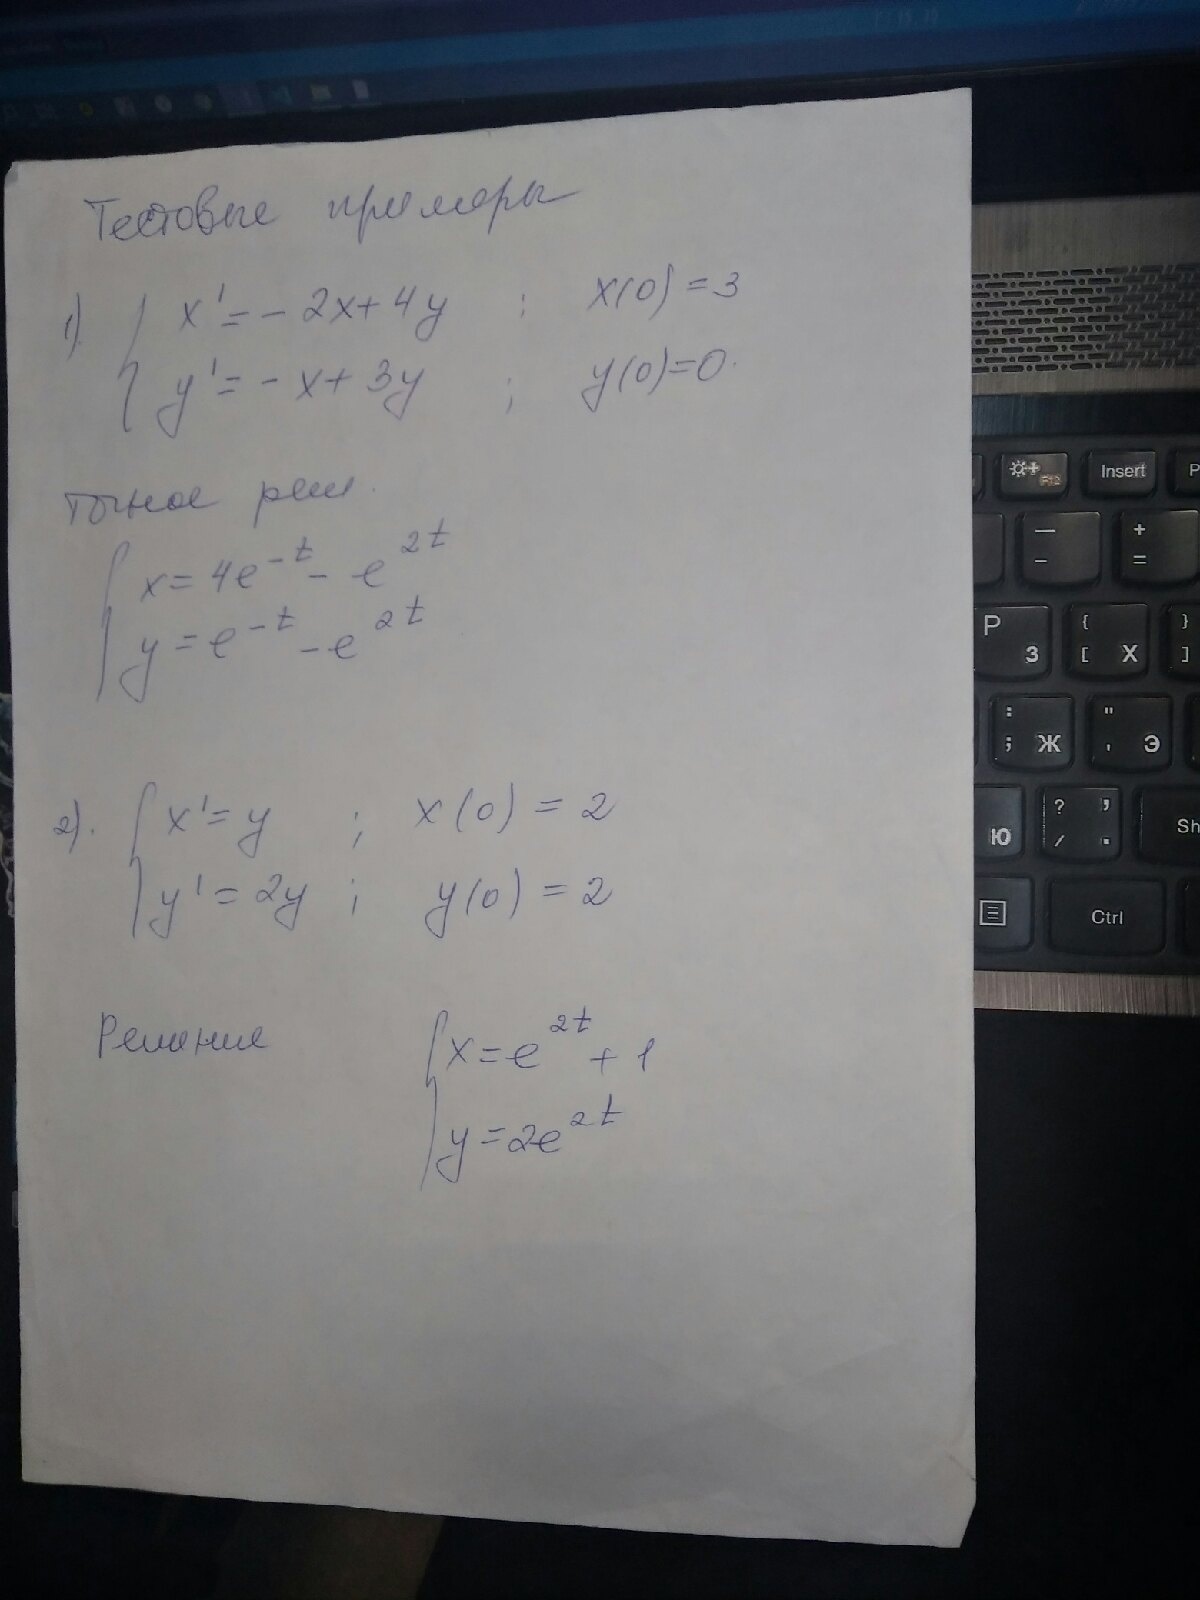 Тестовые примеры
1) { x' = - 2x + 4y ; x(0) = 3
y' = - x + 3y ; y(0) = 0.
Точное реш.
{ x = 4e^{-t} - e^{2t}
y = e^{-t} - e^{2t}
2). { x' = y ; x(0) = 2
y' = 2y ; y(0) = 2
Решение { x = e^{2t} + 1
y = 2e^{2t}
F12
Insert
P
— -
+ =
P З
{ [ Х
} ]
: ; Ж
" ' Э
Ю
? / , .
Sh
Ctrl